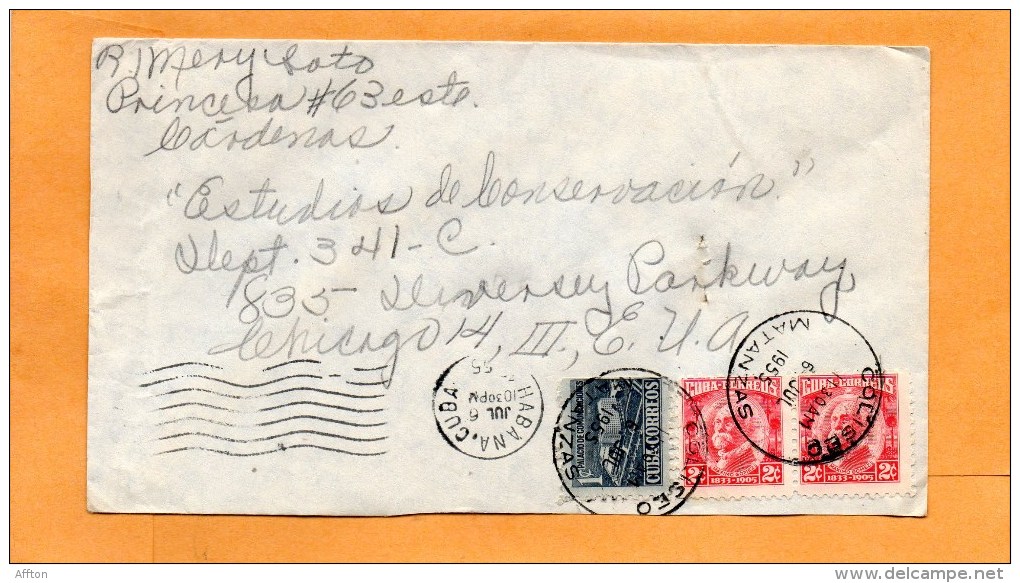 R] Mery Soto
Princesa #63 este.
Cárdenas
"Estudios de Conservación"
Dept. 341-C.
835 - Diversey Parkway
Chicago 14, Ill., E.U.A
HABANA, CUBA
JUL 6
1030 PM
55
PALACIO DE COMUNICACIONES
CUBA CORREOS
1¢
CUBA-CORREOS
2¢ 2¢
1833-1905
CUBA-CORREOS
2¢ 2¢
1833-1905
COLISEO
MATANZAS
6 JUL
1955
COLISEO
MATANZAS
6 JUL
1955
Affton
delcampe.net